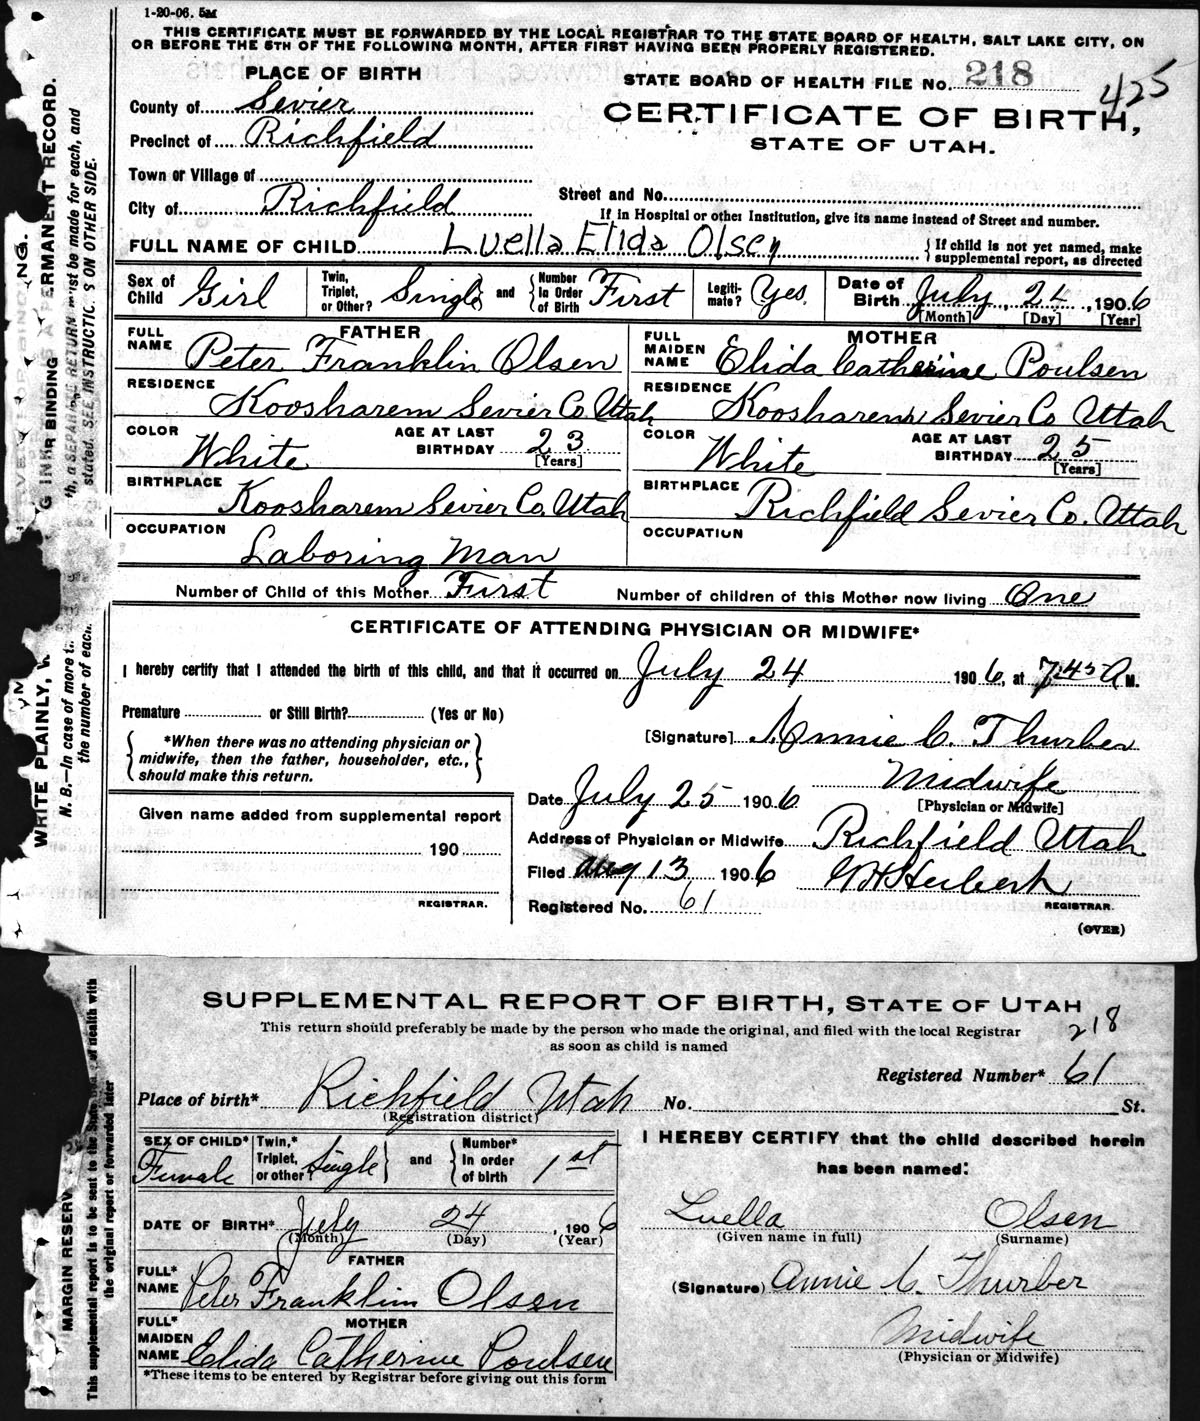 1-20-06. 5M
THIS CERTIFICATE MUST BE FORWARDED BY THE LOCAL REGISTRAR TO THE STATE BOARD OF HEALTH, SALT LAKE CITY, ON
OR BEFORE THE 5TH OF THE FOLLOWING MONTH, AFTER FIRST HAVING BEEN PROPERLY REGISTERED.
PLACE OF BIRTH
STATE BOARD OF HEALTH FILE No. 218
425
County of Sevier
CERTIFICATE OF BIRTH,
Precinct of Richfield
STATE OF UTAH.
Town or Village of
Street and No.
City of Richfield
If in Hospital or other Institution, give its name instead of Street and number.
FULL NAME OF CHILD Luella Elida Olsen
{If child is not yet named, make supplemental report, as directed
Sex of Child Girl Twin, Triplet, or Other? Single } and { Number In Order of Birth First Legiti-mate? Yes Date of Birth July, 24, 1906
[Month] [Day] [Year]
FATHER MOTHER
FULL NAME Peter Franklin Olsen FULL MAIDEN NAME Elida Catherine Poulsen
RESIDENCE Koosharem Sevier Co Utah RESIDENCE Koosharem Sevier Co Utah
COLOR White AGE AT LAST BIRTHDAY 23 [Years] COLOR White AGE AT LAST BIRTHDAY 25 [Years]
BIRTHPLACE Koosharem Sevier Co. Utah BIRTHPLACE Richfield Sevier Co. Utah
OCCUPATION Laboring Man OCCUPATION
Number of Child of this Mother First Number of children of this Mother now living One
CERTIFICATE OF ATTENDING PHYSICIAN OR MIDWIFE*
I hereby certify that I attended the birth of this child, and that it occurred on July 24 1906, at 7:45 A M.
Premature or Still Birth? (Yes or No)
[Signature] Annie C. Thurber
{ *When there was no attending physician or midwife, then the father, householder, etc., should make this return. }
Midwife
[Physician or Midwife]
Date July 25 1906
Given name added from supplemental report
190
REGISTRAR.
Address of Physician or Midwife Richfield Utah
Filed Aug 13 1906
REGISTRAR.
Registered No. 61
(OVER)
WRITE PLAINLY,
BINDING A PERMANENT RECORD.
N. B.—In case of more
a SEPARATE RETURN must be made for each, and
the number of each,
stated. SEE INSTRUCTIONS ON OTHER SIDE.
SUPPLEMENTAL REPORT OF BIRTH, STATE OF UTAH
This return should preferably be made by the person who made the original, and filed with the local Registrar
as soon as child is named
218
Registered Number* 61
Place of birth* Richfield Utah No. St.
(Registration district)
SEX OF CHILD* Female Twin,* Triplet, or other? Single } and { Number* In order of birth 1st
I HEREBY CERTIFY that the child described herein
has been named:
DATE OF BIRTH* July 24, 1906
(Month) (Day) (Year)
Luella Olsen
(Given name in full) (Surname)
FATHER
FULL* NAME Peter Franklin Olsen
(Signature) Annie C. Thurber
MOTHER
FULL* MAIDEN NAME Elida Catherine Poulsen
Midwife
(Physician or Midwife)
*These items to be entered by Registrar before giving out this form
MARGIN RESERV
This supplemental report is to be sent to the State of health with
the original report or forwarded later